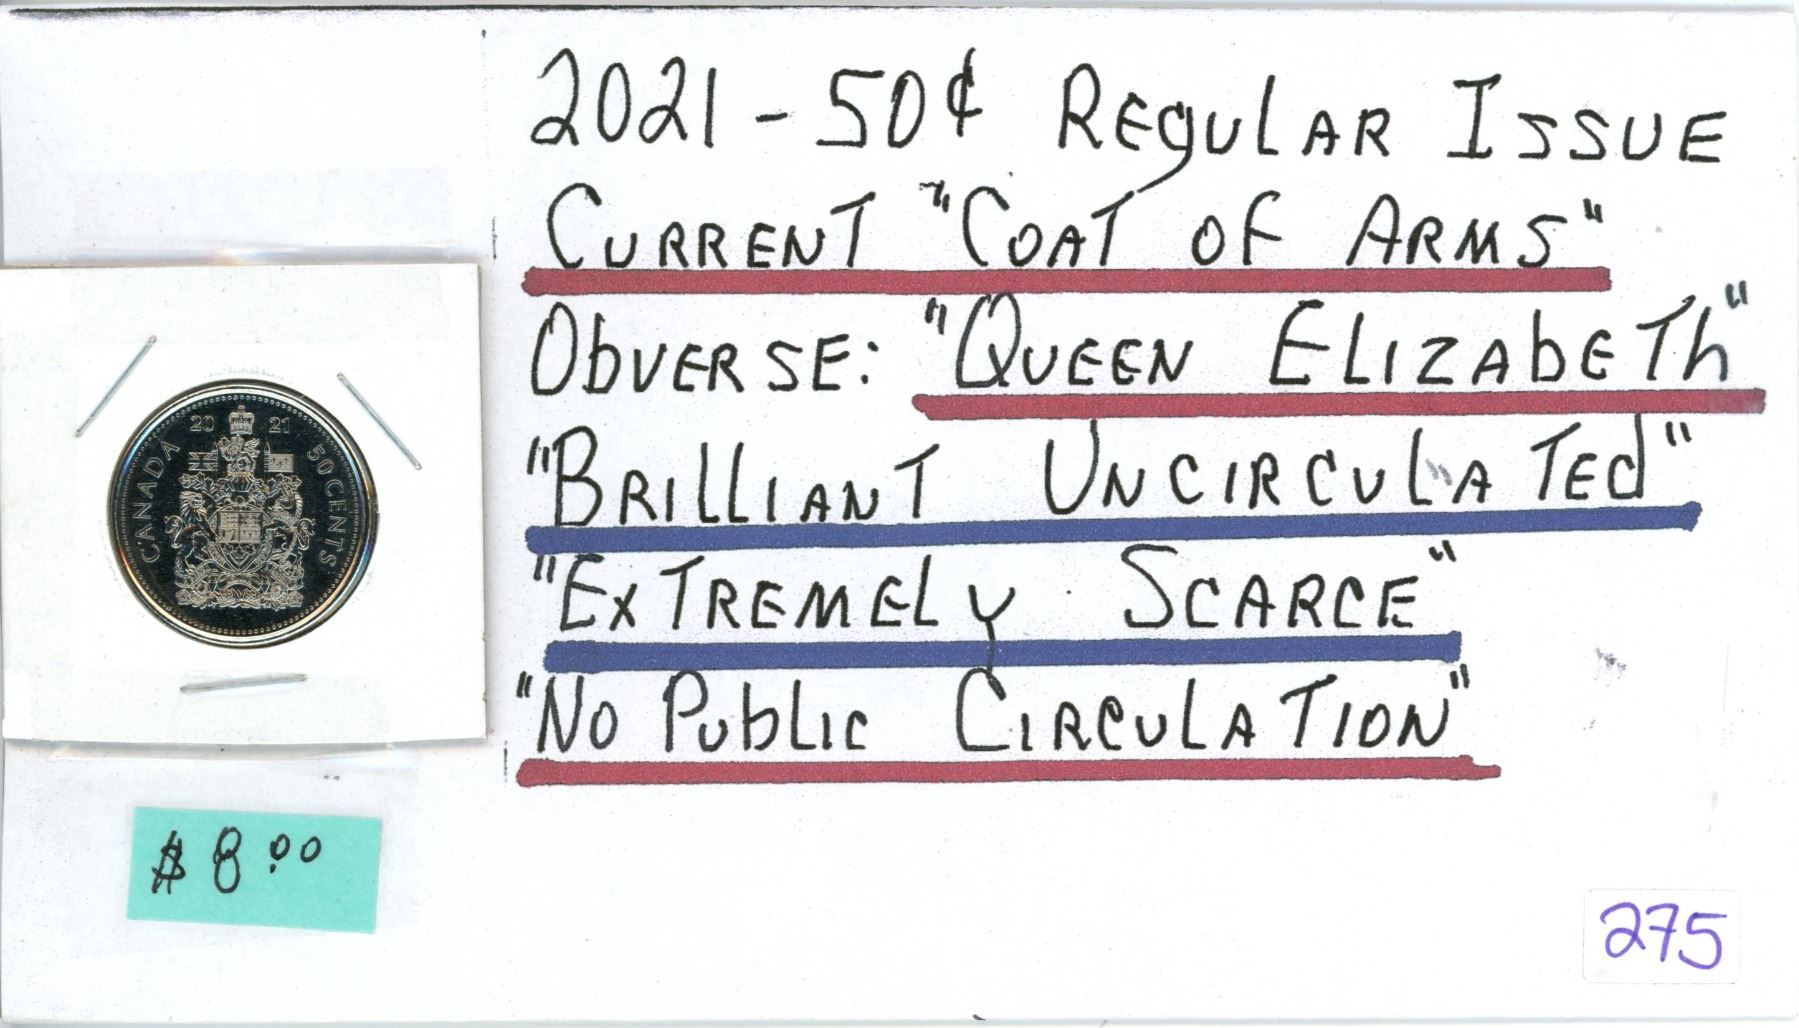 2021 - 50¢ REGULAR ISSUE
CURRENT "COAT OF ARMS"
OBVERSE: "QUEEN ELIZABETH"
"BRILLIANT UNCIRCULATED"
"EXTREMELY SCARCE"
"NO PUBLIC CIRCULATION"
CANADA 20 21 50 CENTS
$8.00
275